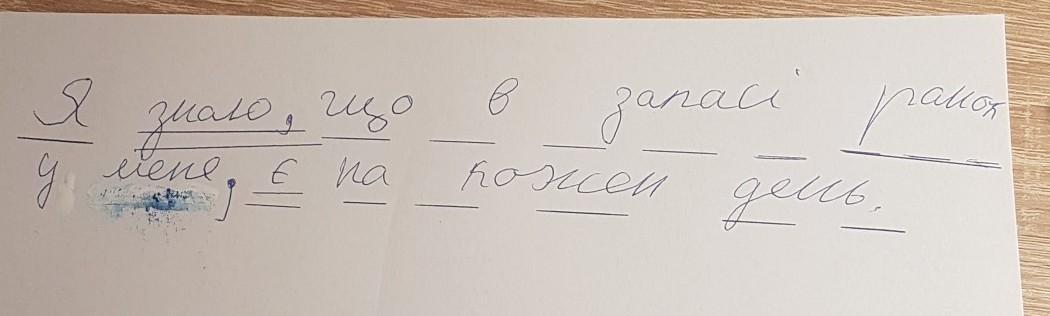 Я знаю, що в запасі ранок
у мене, є на кожен день.